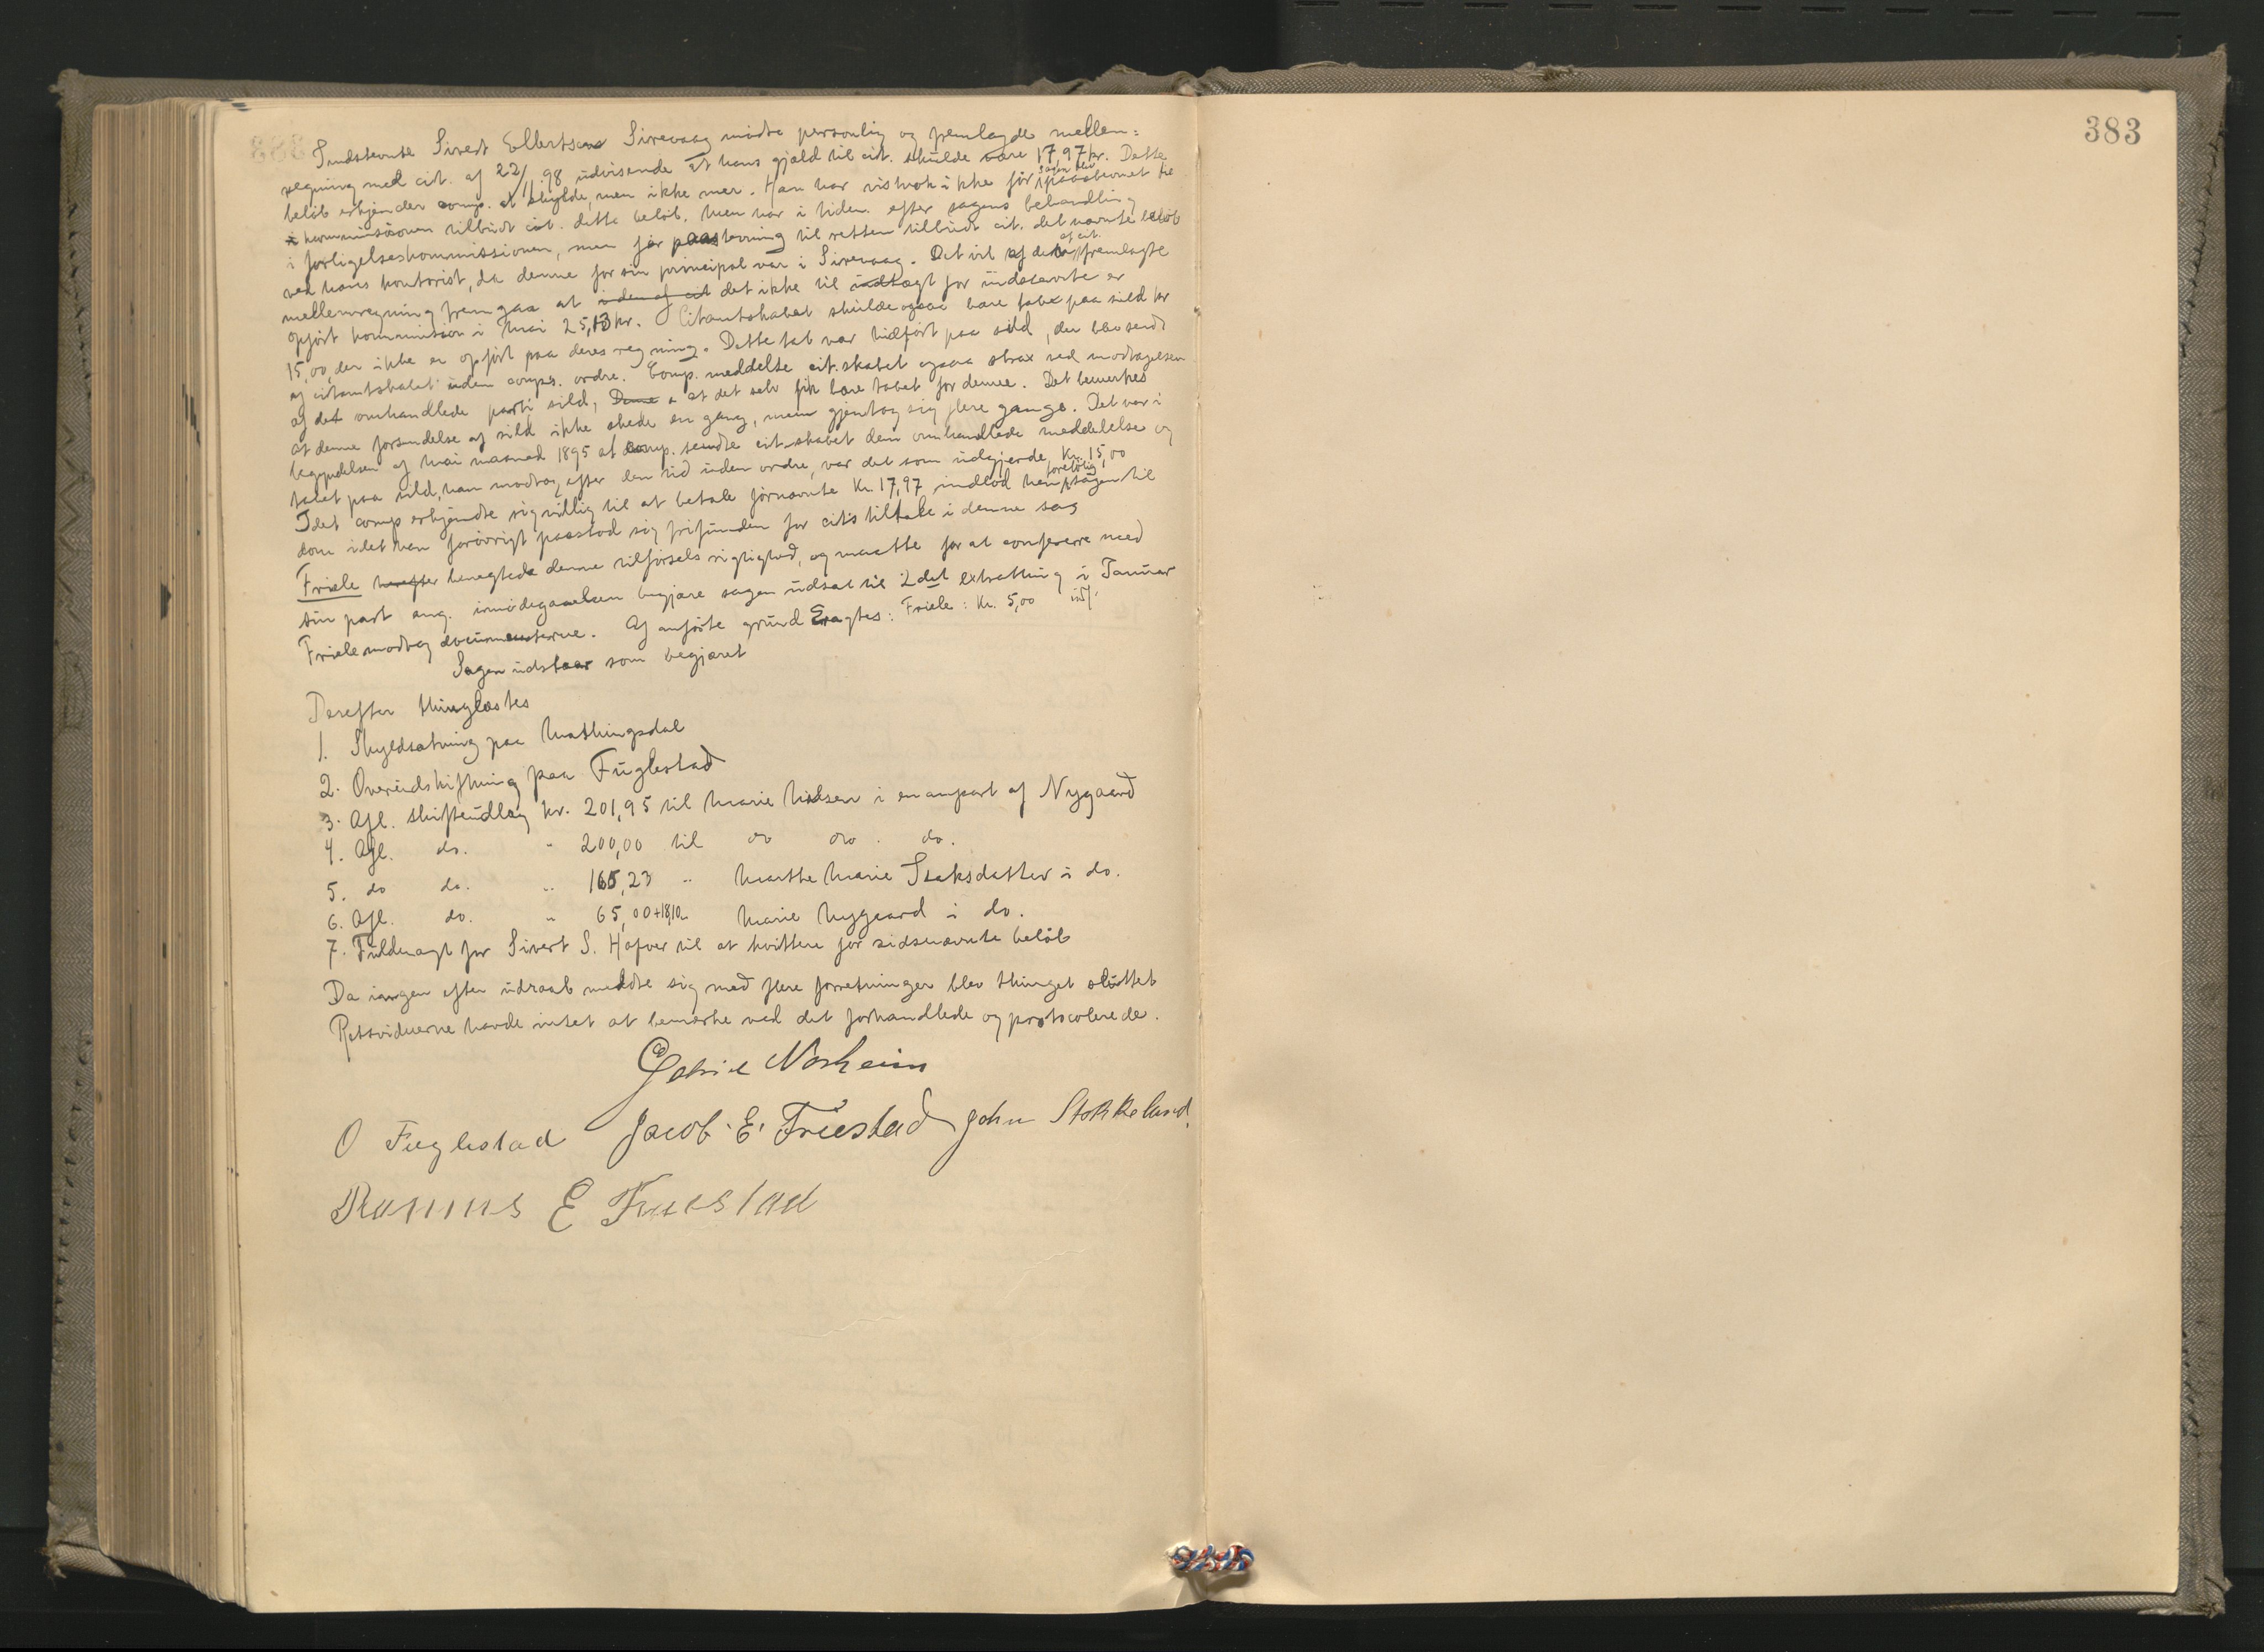 383
Indstevnte Sivert Ellertsen Sirevaag mødte personlig og fremlagde mellem=
regning med cit. af 22/11 98 udvisende at hans gjæld til cit. skulde være 17,97 kr. Dette
beløb erkjender comp. at skylde, men ikke mer. Han har vistnok ikke før sagen blev paastevnet til
i kommissionen tilbudt cit. dette beløb, men har i tiden efter sagens behandling
i forligelseskommissionen, men før paastevning til retten tilbudt cit. det nævnte beløb
ved hans kontorist, da denne for sin principal var i Sirevaag. Det vil af den af cit. fremlagte
mellemregning fremgaa at inden af cit det ikke til indtægt for indstævnte er
opført kommission i Mai 25,13 kr. Citantskabet skulde ogsaa bære tabet paa sild kr
15,00, der ikke er opført paa deres regning. Dette tab var tilført paa sild, der blev sendt
af citantskabet uden comps. ordre. Comp. meddelte cit.skabet ogsaa strax ved modtagelsen
af det omhandlede parti sild, Denne at det selv fik bære tabet for denne. Det bemerkes
at denne forsendelse af sild ikke skede en gang, men gjentog sig flere gange. Det var i
begyndelsen af Mai maaned 1895 at comp. sendte cit.skabet den omhandlede meddelelse og
tabet paa sild, han modtog efter den tid uden ordre, var det som udgjorde Kr. 15,00
Idet comp erkjendte sig villig til at betale førnævnte Kr. 17,97 indlod han foreløbig sagen til
dom idet han forøvrigt paastod sig frifunden for cit's tiltale i denne sag
Friele herefter benegtede denne tilførsels rigtighed, og maatte for at conferere med
sin part ang. imødegaaelsen begjære sagen udsat til 2det extrathing i Januar
Friele modtog documenterne. Af anførte grund Eragtes: Friele: Kr. 5,00
Sagen udstaar som begjæret
Derefter thinglæstes
1. Skyldsætning paa Mathingsdal
2. Overudskiftning paa Fuglestad
3. Afl. skifteudlæg kr. 201,95 til Marie Nilsen i en anpart af Nygaard
4. Afl. do. " 200,00 til do do. do.
5. do do. " 165,23 " Marthe Marie Isaksdatter i do.
6. Afl. do. " 65,00+18,10 Marie Nygaard i do.
7. Fuldmagt for Sivert S. Hafver til at kvittere for sidsnævnte beløb
Da ingen efter udraab meldte sig med flere forretninger blev thinget sluttet
Retsvidnerne havde intet at bemærke ved det forhandlede og protocolerede.
Gabriel Norheim
O Fuglestad Jacob. E. Fuestad John Stokkeland.
Rasmus E Fuestad